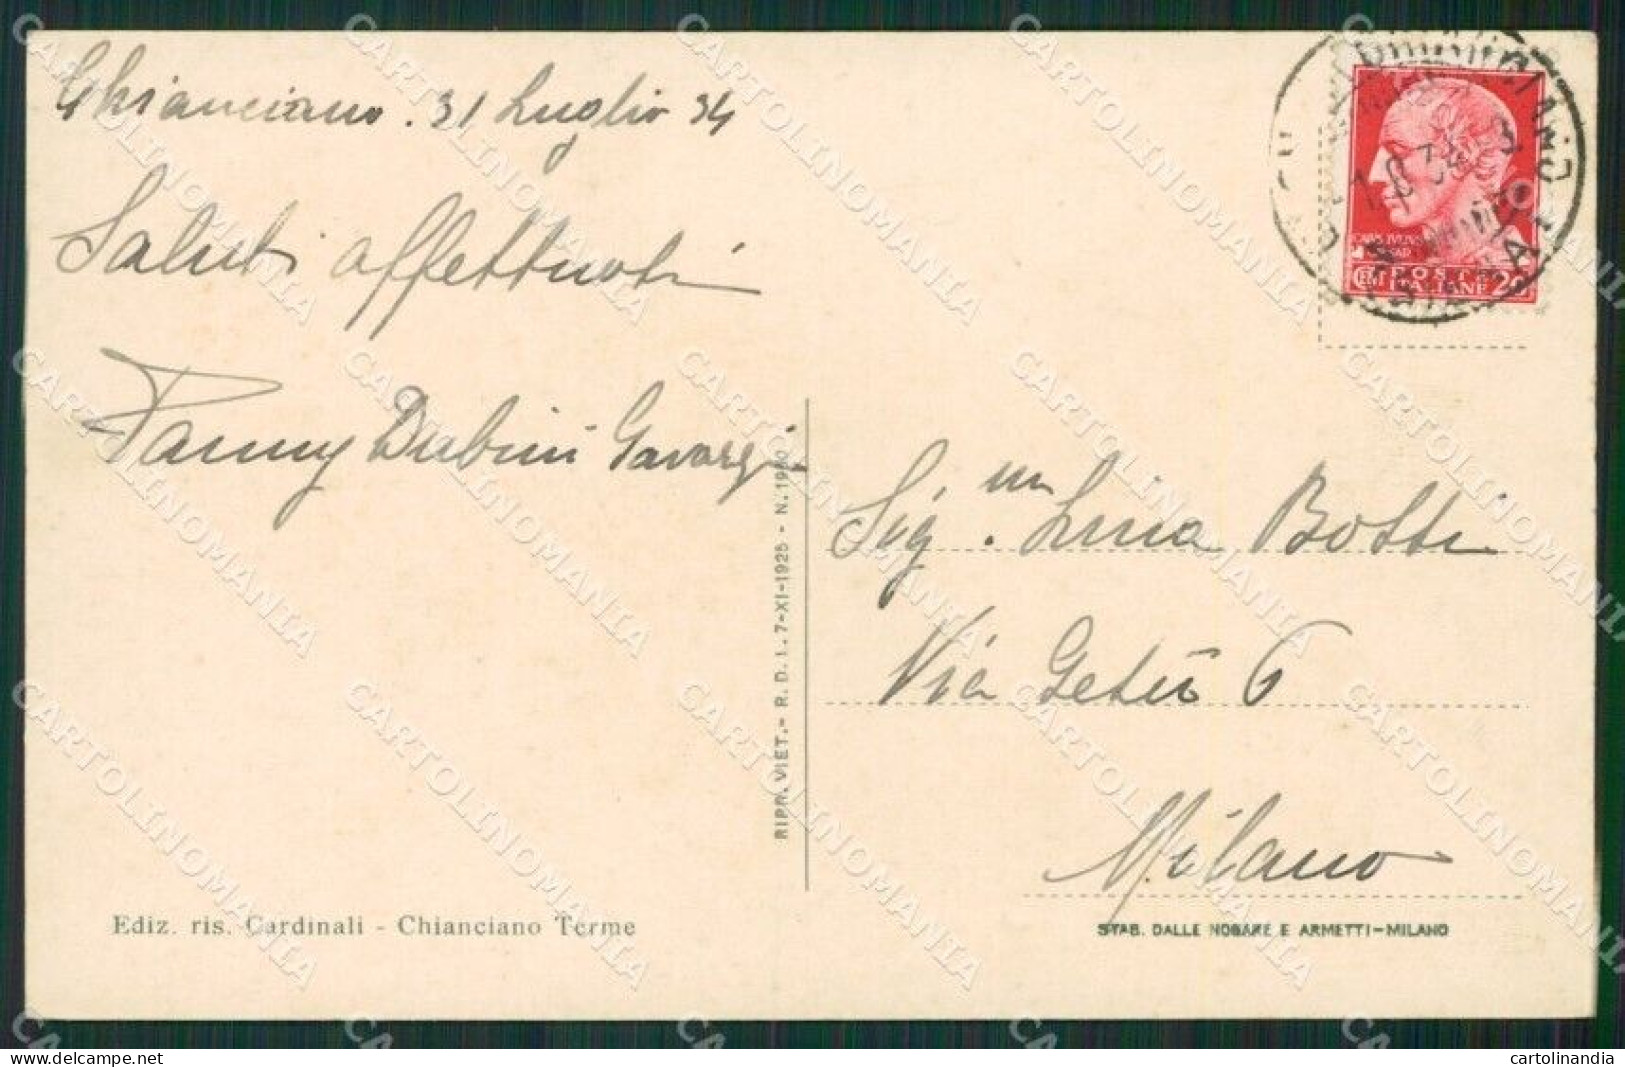 Chianciano. 31 Luglio 34
Saluti affettuosi
Fanny Dubini Gavazzi
Sig.na Luisa Botti
Via Gesù 6
Milano
RIPR. VIET. - R. D. L. 7-XI-1925 - N. 1950
Ediz. ris. Cardinali - Chianciano Terme
STAB. DALLE NOGARE E ARMETTI-MILANO
POSTE
ITALIANE
CARTOLINOMANIA
cartolinandia